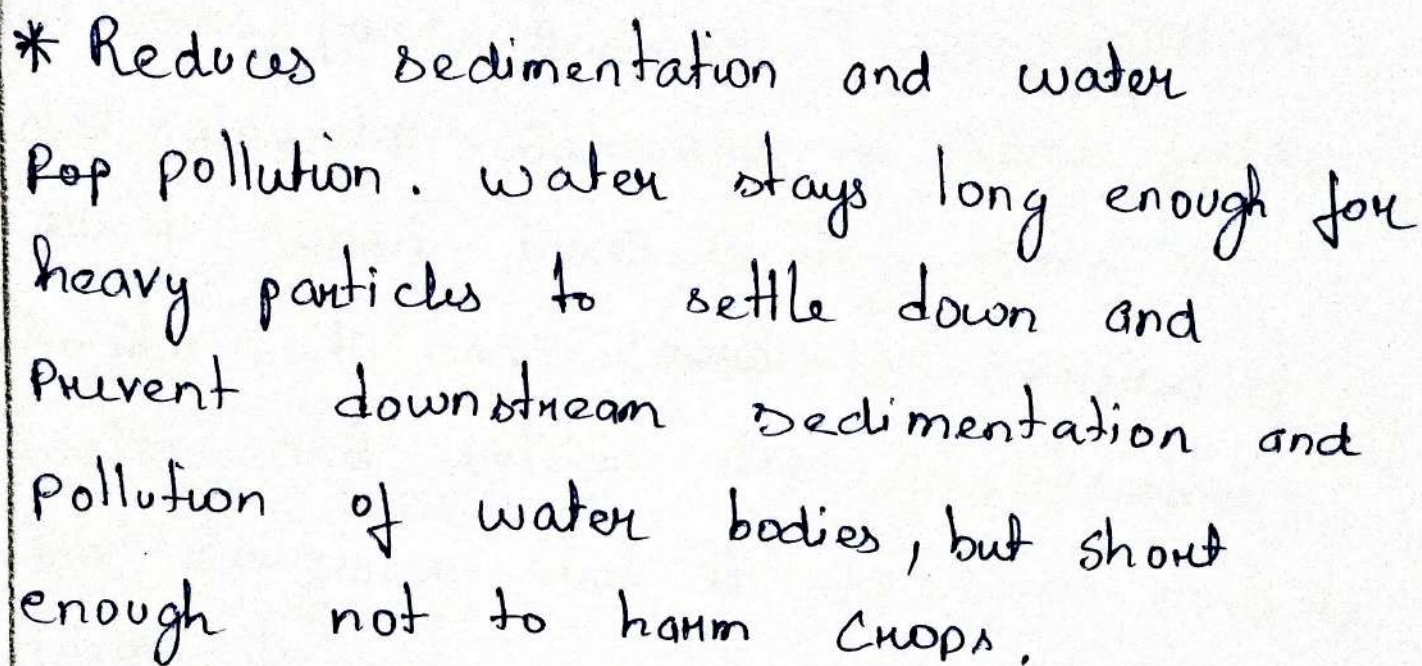 * Reduces sedimentation and water
Pop pollution. water stays long enough for
heavy particles to settle down and
Prevent downstream sedimentation and
pollution of water bodies, but short
enough not to harm crops.